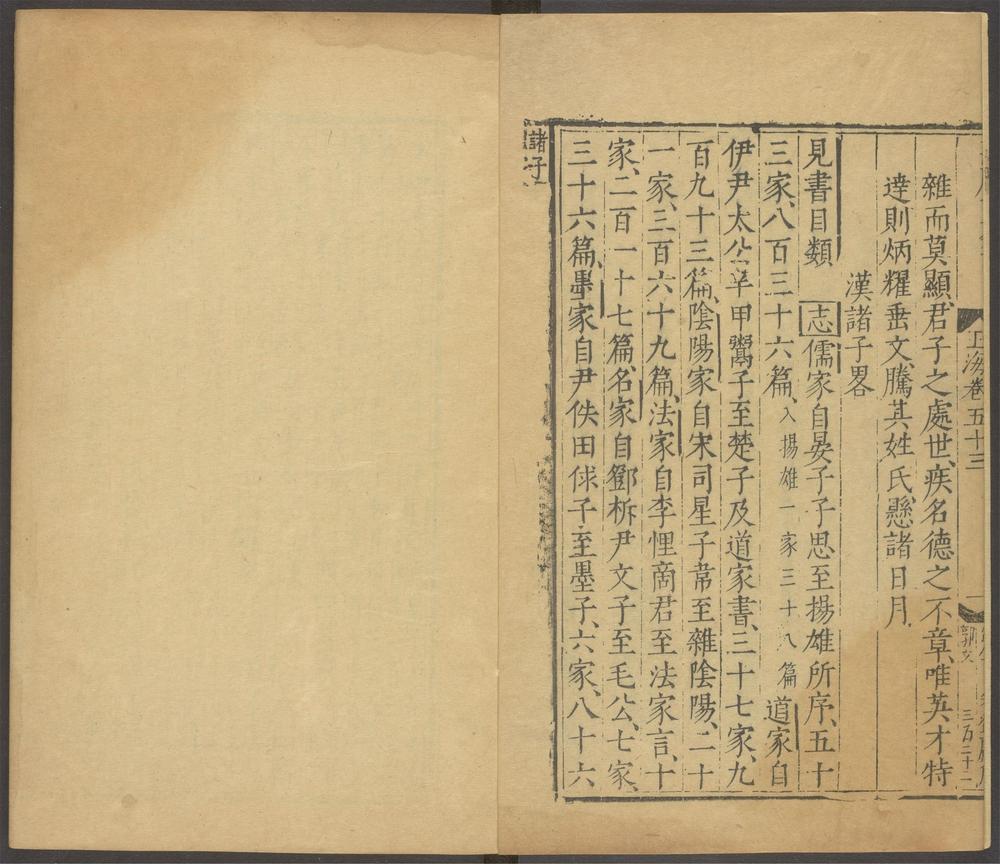 玉海卷五十三
雜而莫顯君子之處世疾名德之不章唯英才特
達則炳耀垂文騰其姓氏懸諸日月
漢諸子畧
見書目類 志儒家自晏子子思至揚雄所序五十
三家八百三十六篇入揚雄一家三十八篇道家自
伊尹太公辛甲鬻子至楚子及道家書三十七家九
百九十三篇陰陽家自宋司星子韋至雜陰陽二十
一家三百六十九篇法家自李悝商君至法家言十
家二百一十七篇名家自鄧析尹文子至毛公七家
三十六篇墨家自尹佚田俅子至墨子六家八十六
諸子